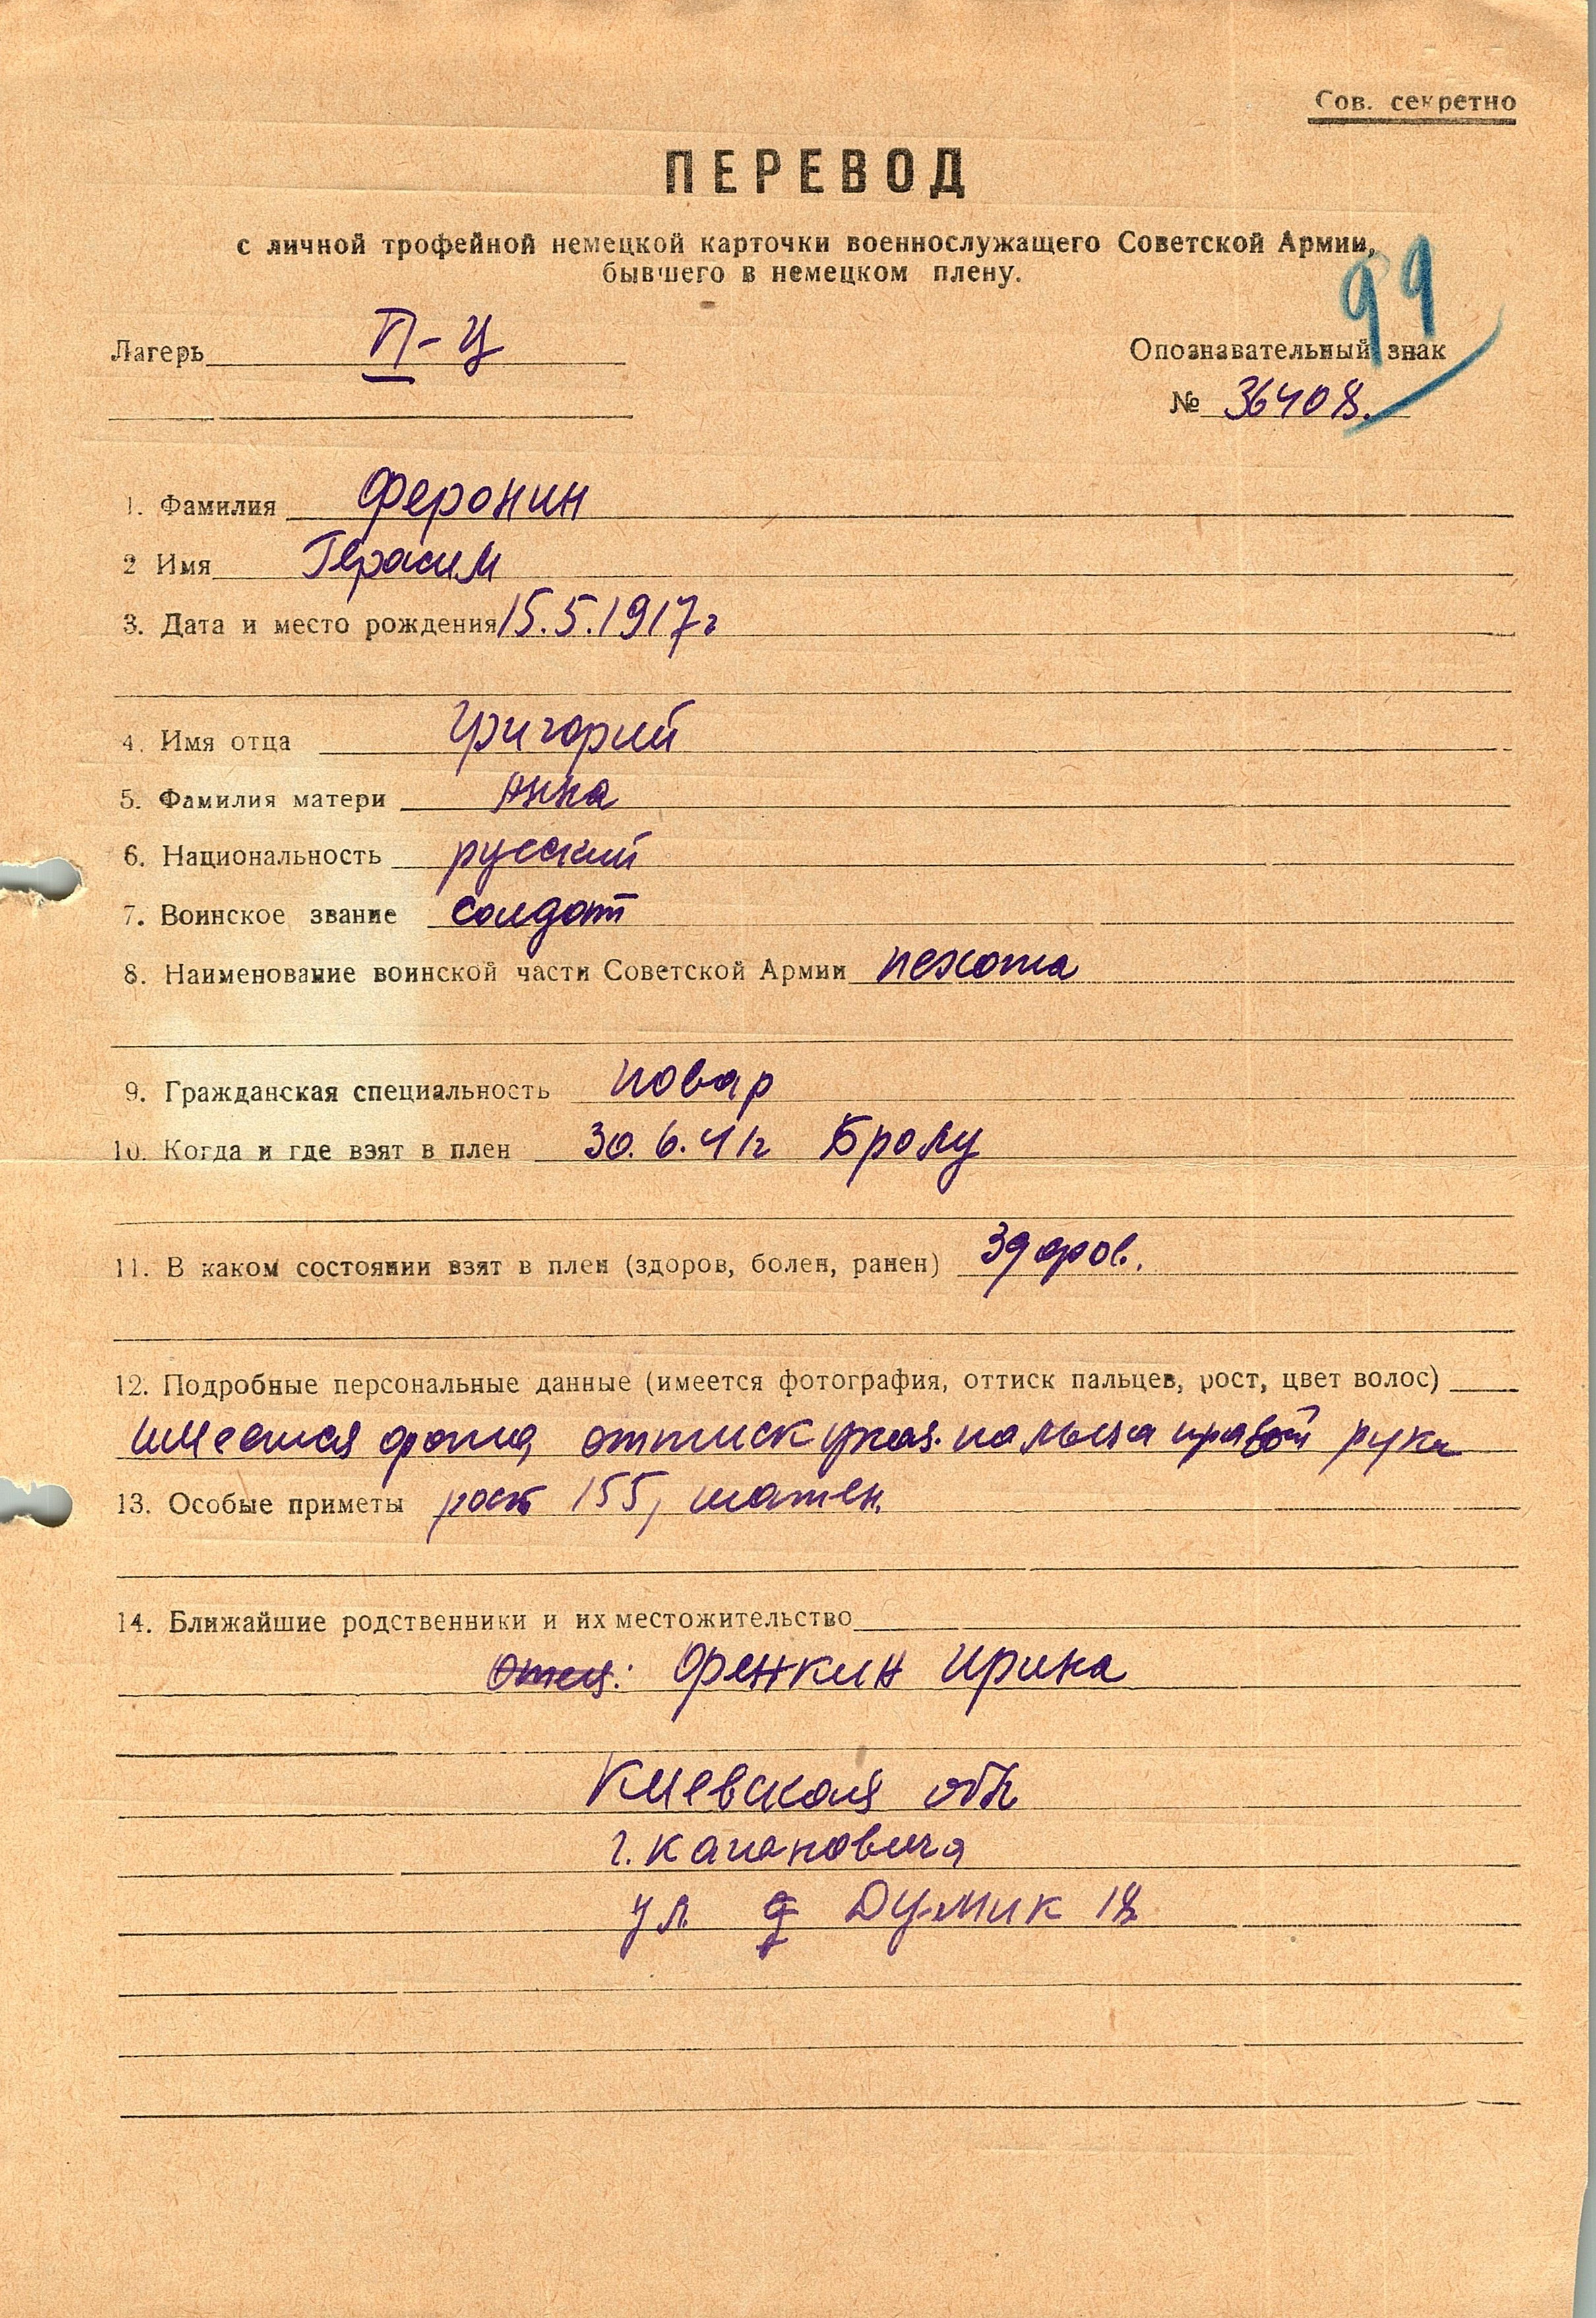 Сов. секретно
ПЕРЕВОД
с личной трофейной немецкой карточки военнослужащего Советской Армии,
бывшего в немецком плену.
99
Лагерь II-Ц
Опознавательный знак
№ 36408.
1. Фамилия Феронин
2 Имя Герасим
3. Дата и место рождения 15.5.1917г
4. Имя отца Григорий
5. Фамилия матери Анна
6. Национальность русский
7. Воинское звание солдат
8. Наименование воинской части Советской Армии пехота
9. Гражданская специальность повар
10. Когда и где взят в плен 30.6.41г Бролу
11. В каком состоянии взят в плен (здоров, болен, ранен) здоров.
12. Подробные персональные данные (имеется фотография, оттиск пальцев, рост, цвет волос)
имеется фото, оттиск указ. пальца правой руки
13. Особые приметы рост 155, шатен.
14. Ближайшие родственники и их местожительство
отец: Френкин Ирина
Киевская обл
г. Кагановича
ул д Думик 18